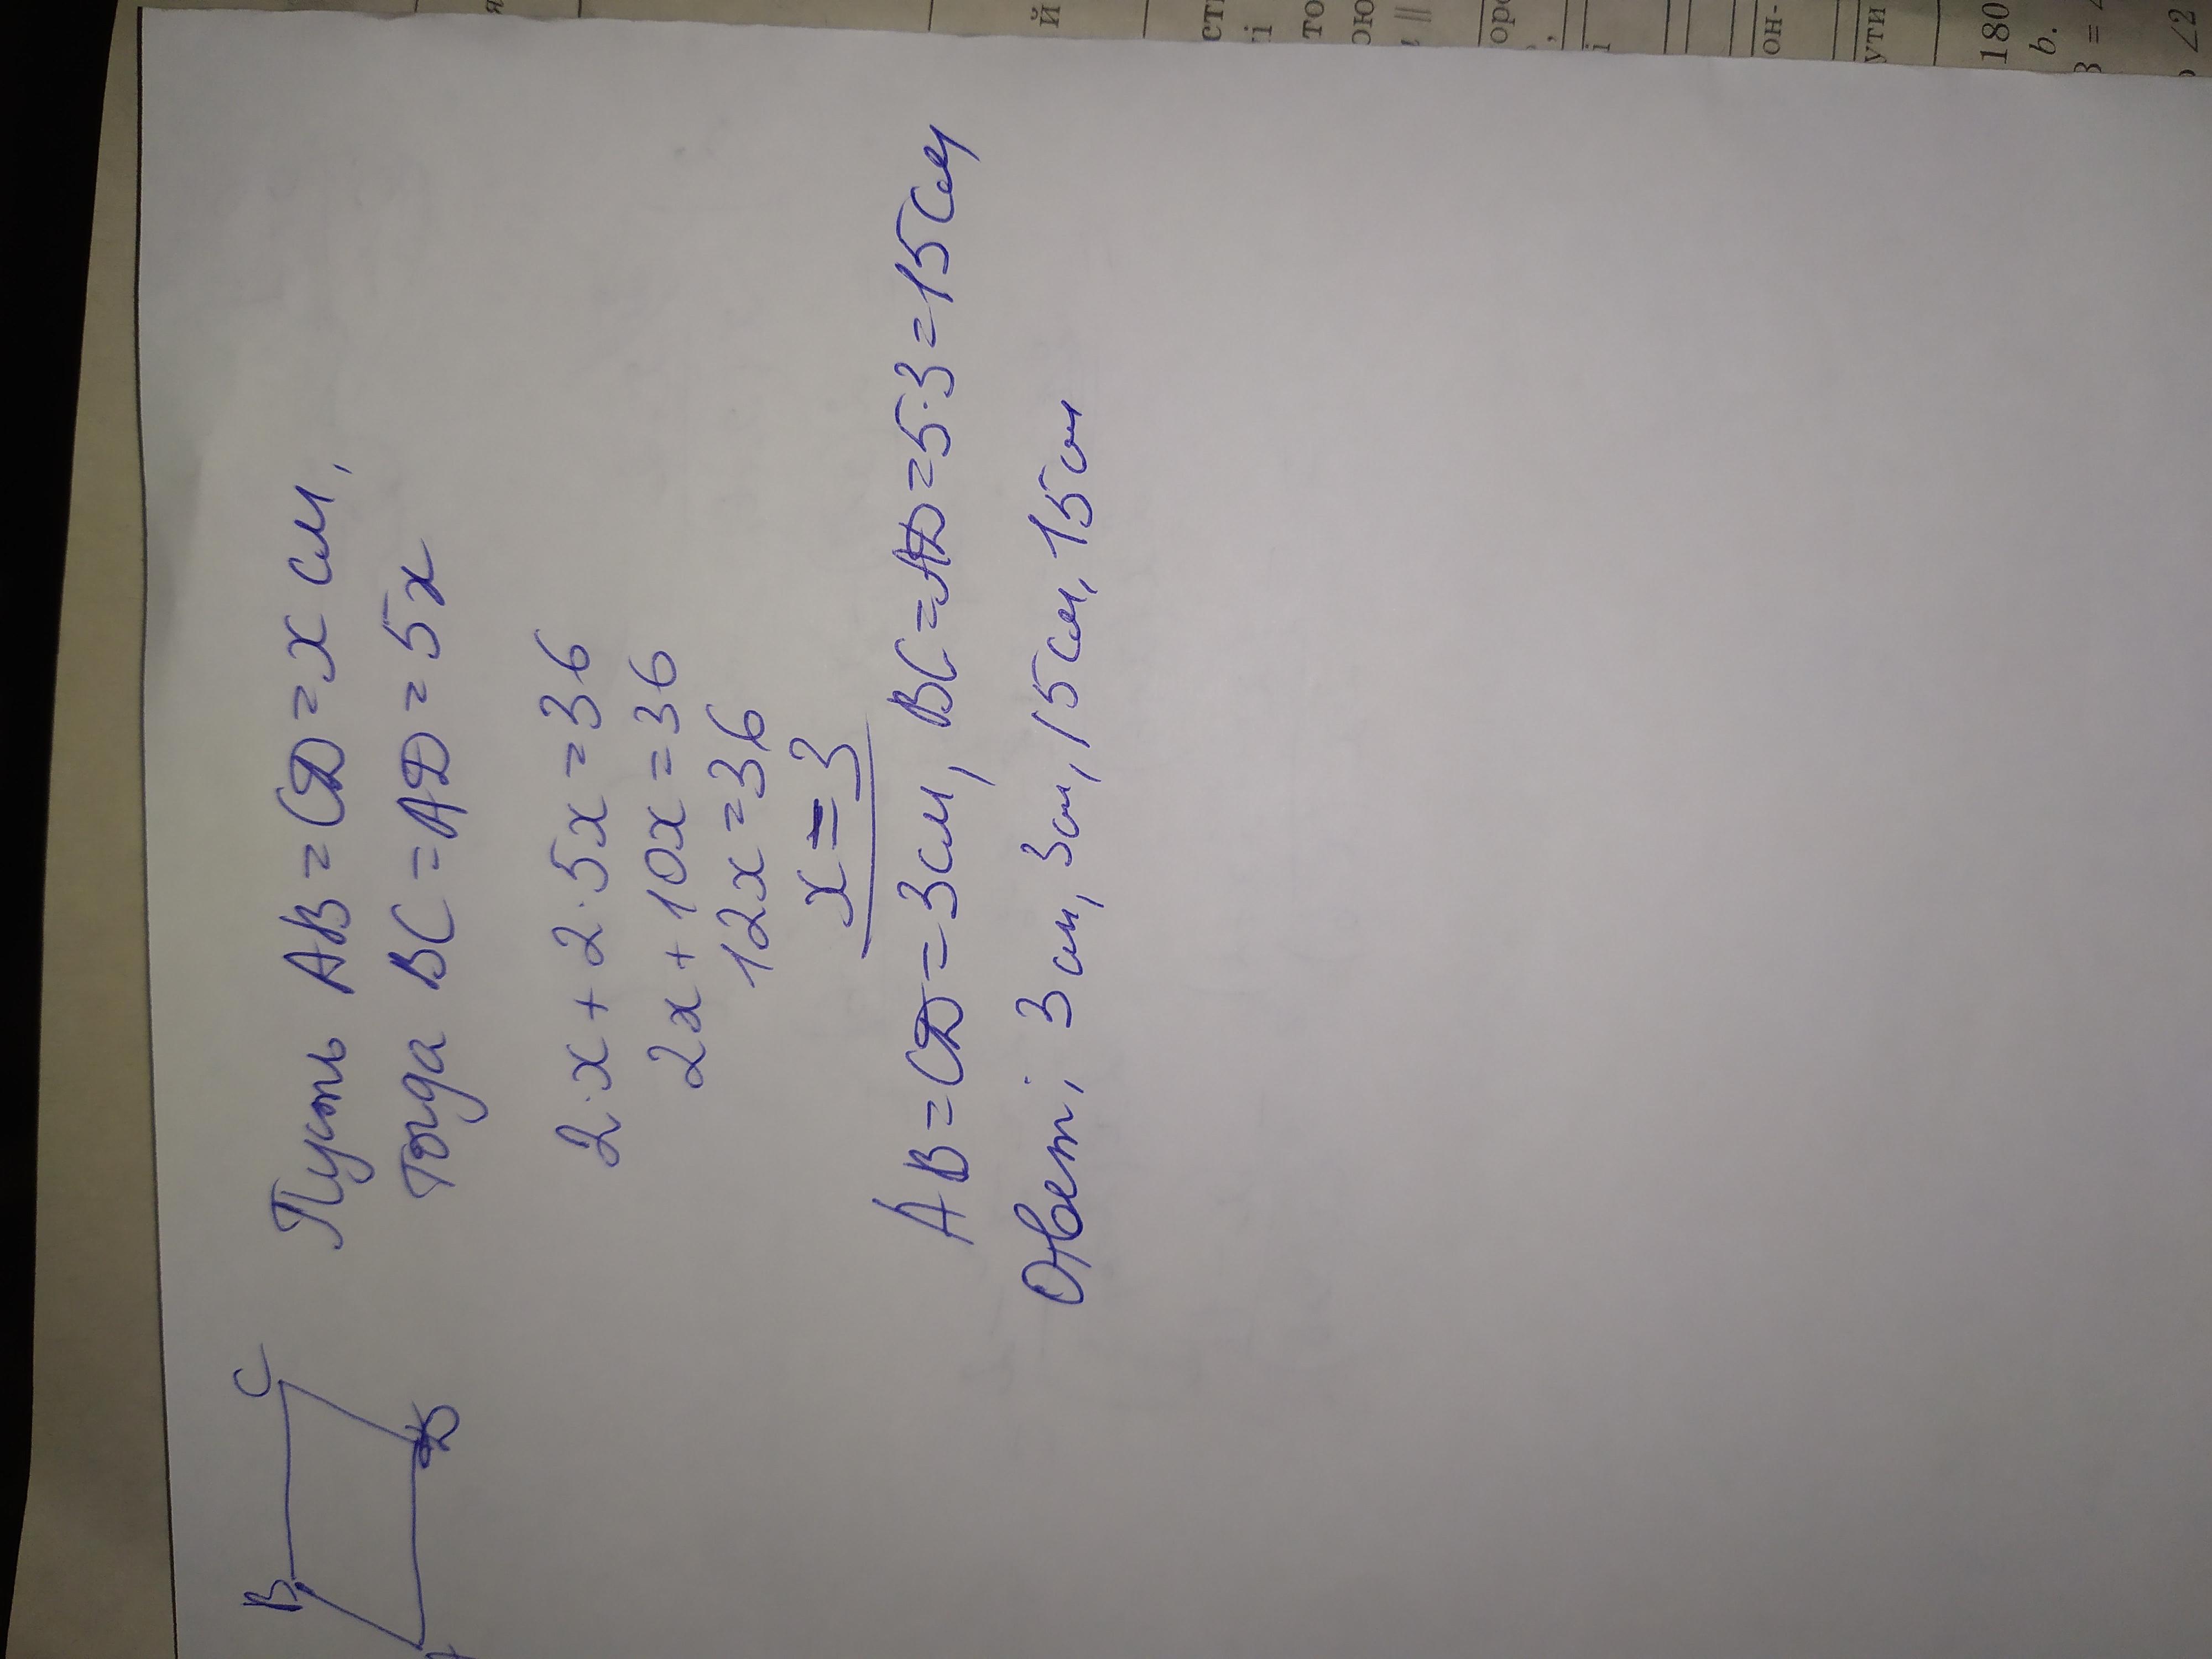 B C
A D
Пусть AB = CD = x см,
Тогда BC = AD = 5x
2·x + 2·5x = 36
2x + 10x = 36
12x = 36
x = 3
AB = CD = 3см, BC = AD = 5·3 = 15см
Ответ; 3 см, 3см, 15см, 15см
я
й
ст
ті
то
ою
||
оро
,
і
он-
ути
180
b.
=
∠2